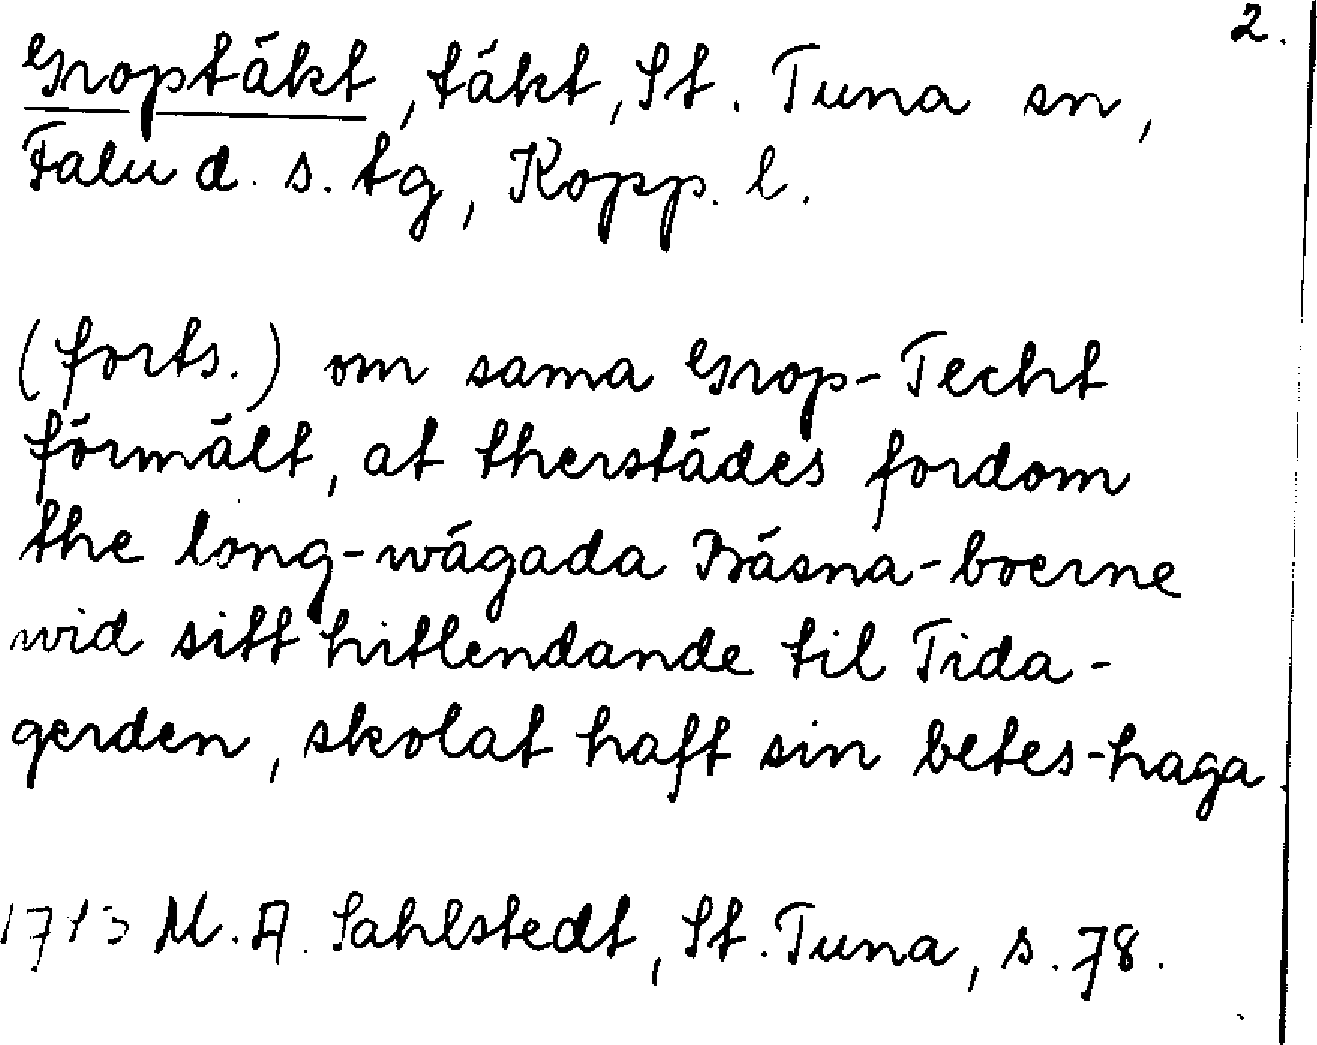 2.
Groptäkt, täkt, St. Tuna sn,
Falu d. s. tg, Kopp. l.
(forts.) om sama Grop-Techt
förmält, at therstädes fordom
the long-wägada Bäsna-boerne
wid sitt hitlendande til Tida-
gerden, skolat haft sin betes-haga
1713 M. A. Sahlstedt, St. Tuna, s. 78.